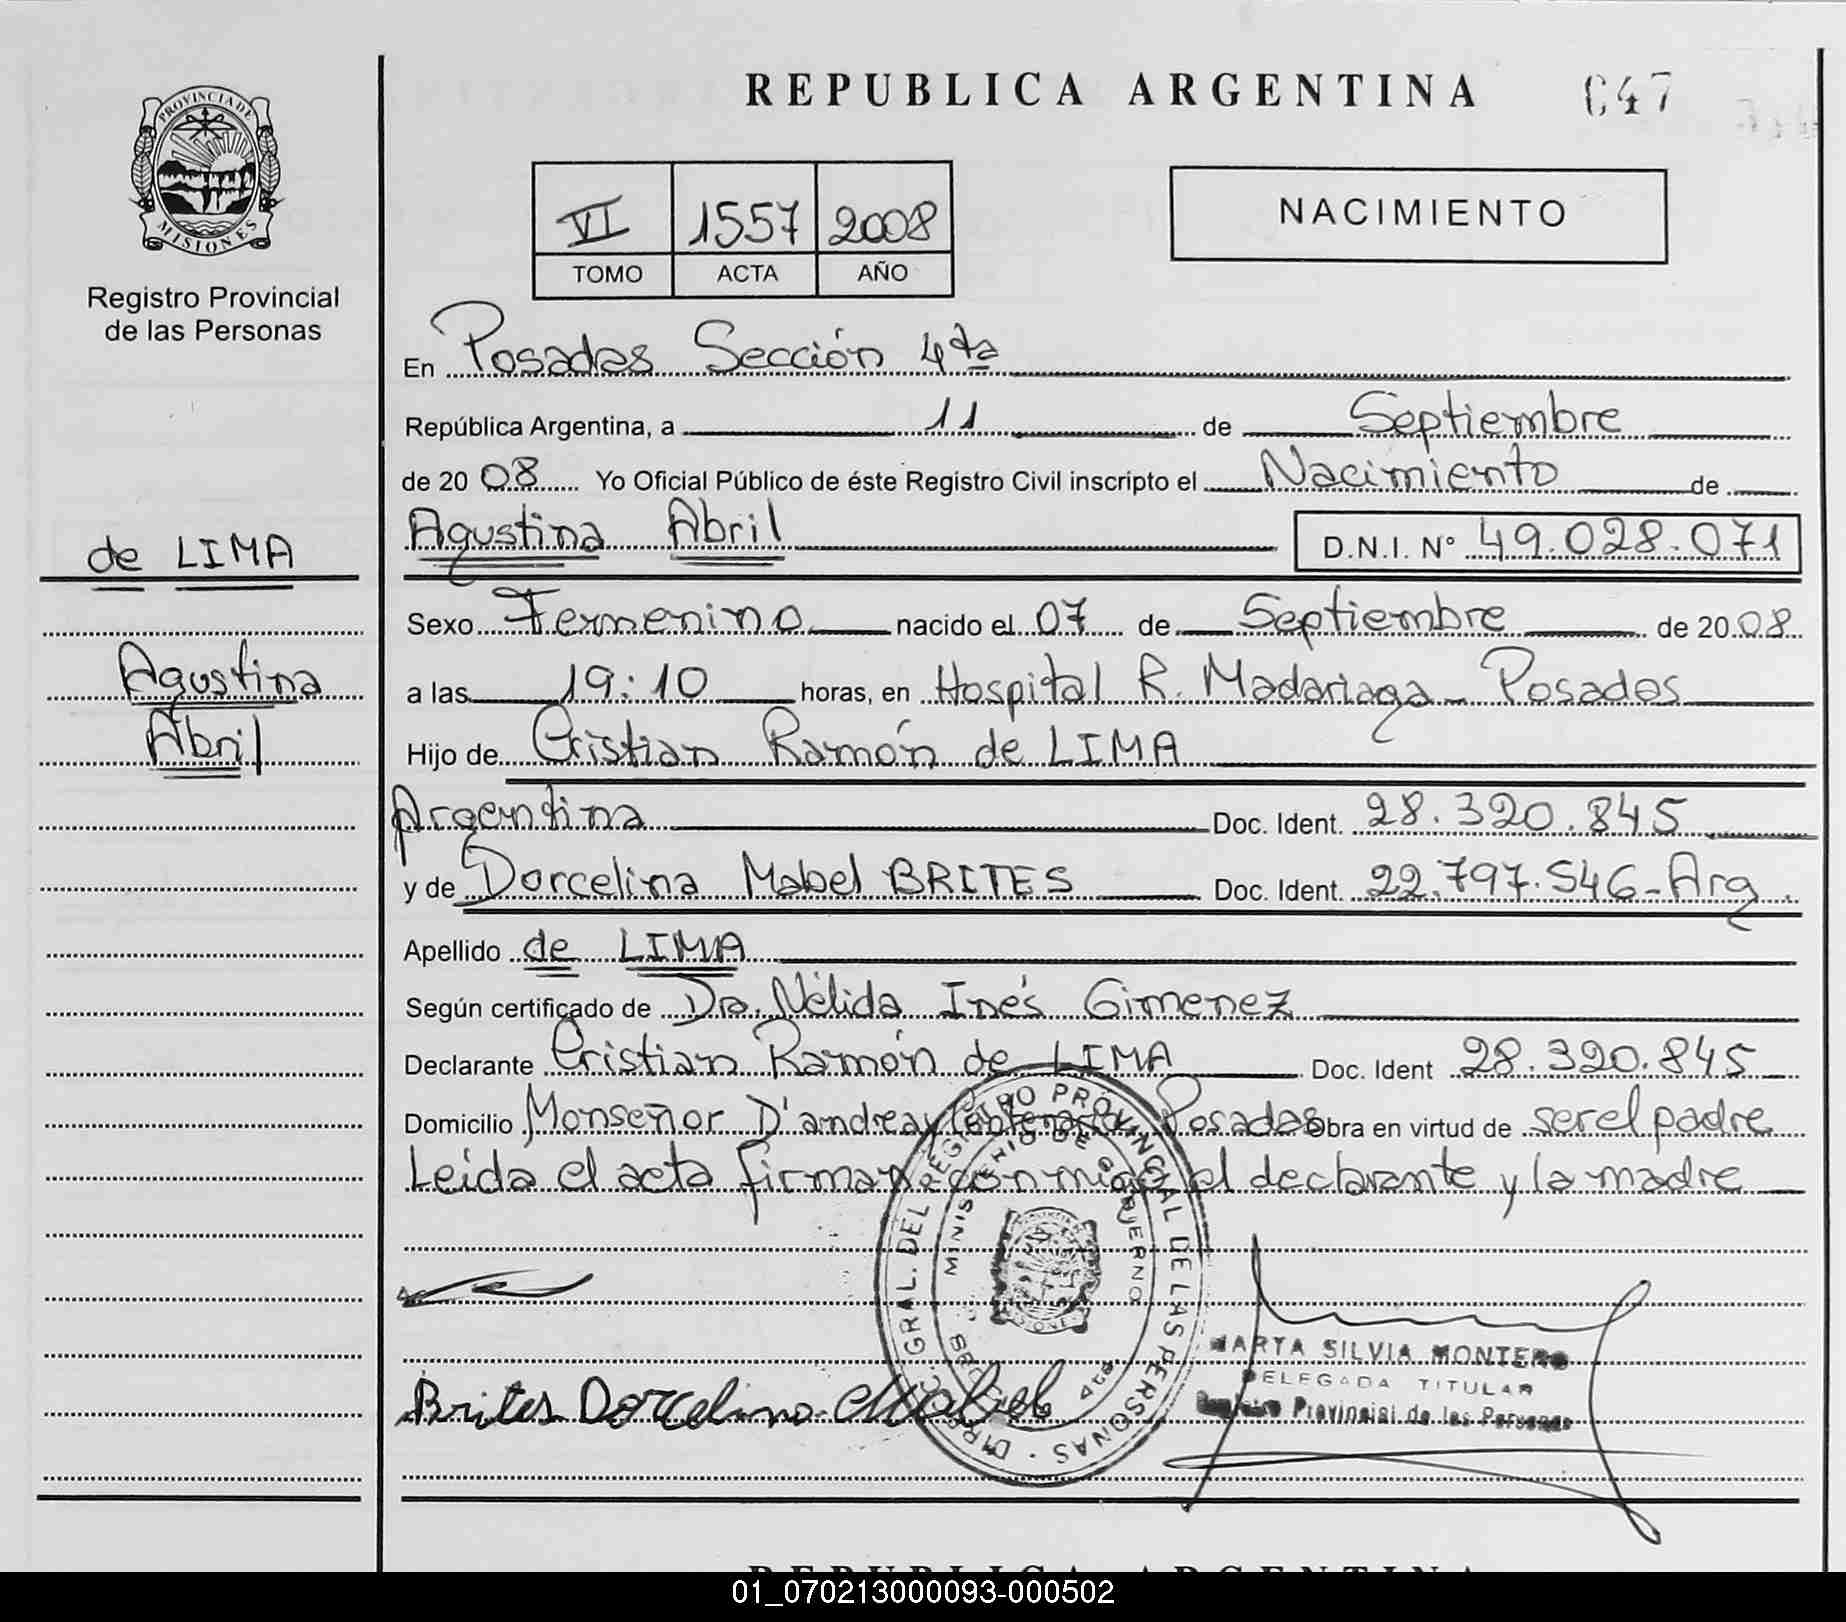 REPUBLICA ARGENTINA
047
PROVINCIA DE
MISIONES
Registro Provincial
de las Personas
VI 1557 2008
TOMO ACTA AÑO
NACIMIENTO
En Posadas Sección 4ta
República Argentina, a 11 de Septiembre
de 2008 Yo Oficial Público de éste Registro Civil inscripto el Nacimiento de
Agustina Abril D.N.I. Nº 49.028.071
de LIMA
Agustina
Abril
Sexo Femenino nacido el 07 de Septiembre de 2008
a las 19:10 horas, en Hospital R. Madariaga - Posadas
Hijo de Cristian Ramón de LIMA
Argentina Doc. Ident. 28.320.845
y de Dorcelina Mabel BRITES Doc. Ident. 22.797.546 - Arg.
Apellido de LIMA
Según certificado de Dra. Nélida Inés Gimenez
Declarante Cristian Ramón de LIMA Doc. Ident 28.320.845
Domicilio Monseñor D'andrea y Posadas Obra en virtud de ser el padre
Leida el acta firman conmigo el declarante y la madre
DIREC. GRAL. DEL REGISTRO PROVINCIAL DE LAS PERSONAS
MINISTERIO DE GOBIERNO
4ta
MISIONES
Brites Dorcelina Mabel
MARTA SILVIA MONTERO
DELEGADA TITULAR
Registro Provincial de las Personas
REPUBLICA ARGENTINA
01_070213000093-000502